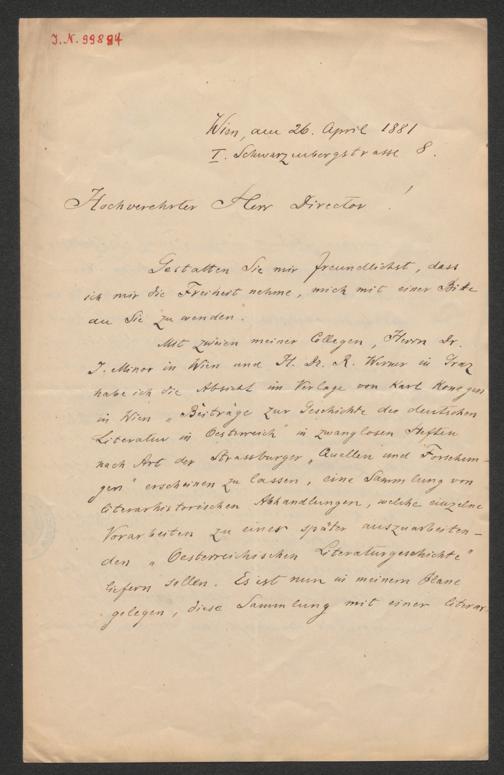 J. N. 99894
Wien, am 26. April 1881
I. Schwarzenbergstrasse 8.
Hochverehrter Herr Director!
Gestatten Sie mir freundlichst, dass
ich mir die Freiheit nehme, mich mit einer Bitte
an Sie zu wenden.
Mit zweien meiner Collegen, Herrn Dr.
J. Minor in Wien und H. Dr. R. Werner in Graz
habe ich die Absicht im Verlage von Karl Konegen
in Wien „Beiträge zur Geschichte der deutschen
Literatur in Oesterreich" in zwanglosen Heften
nach Art der Strassburger „Quellen und Forschun-
gen" erscheinen zu lassen, eine Sammlung von
literarhistorischen Abhandlungen, welche einzelne
Vorarbeiten zu einer später auszuarbeiten-
den „Oesterreichischen Literaturgeschichte"
liefern sollen. Es ist nun in meinem Plane
gelegen, diese Sammlung mit einer literar-